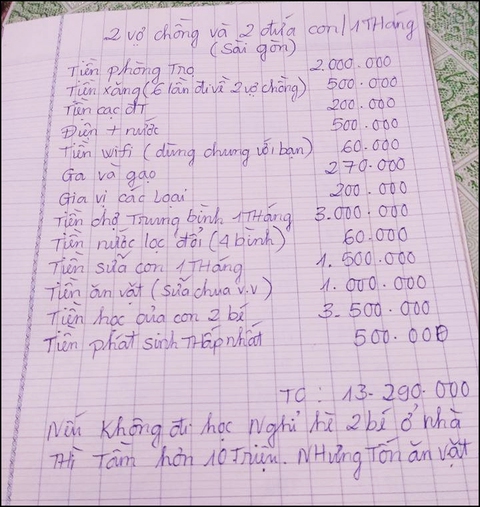 2 vợ chồng và 2 đứa con/1 THáng
(Sài gòn)
Tiền phòng Trọ 2.000.000
Tiền xăng (6 lần đi về 2 vợ chồng) 500.000
Tiền cạc ĐT 200.000
Điện + nước 500.000
Tiền wifi (dùng chung với bạn) 60.000
Ga và gạo 270.000
Gia vị các loại 200.000
Tiền chợ Trung bình 1 THáng 3.000.000
Tiền nước lọc đổi (4 bình) 60.000
Tiền sữa con 1 THáng 1.500.000
Tiền ăn vặt (Sữa chua v.v) 1.000.000
Tiền học của con 2 bé 3.500.000
Tiền phát sinh THấp nhất 500.000
TC: 13.290.000
Nếu Không đi học Nghỉ hè 2 bé ở nhà
THì Tầm hơn 10 Triệu. NHưng Tốn ăn vặt